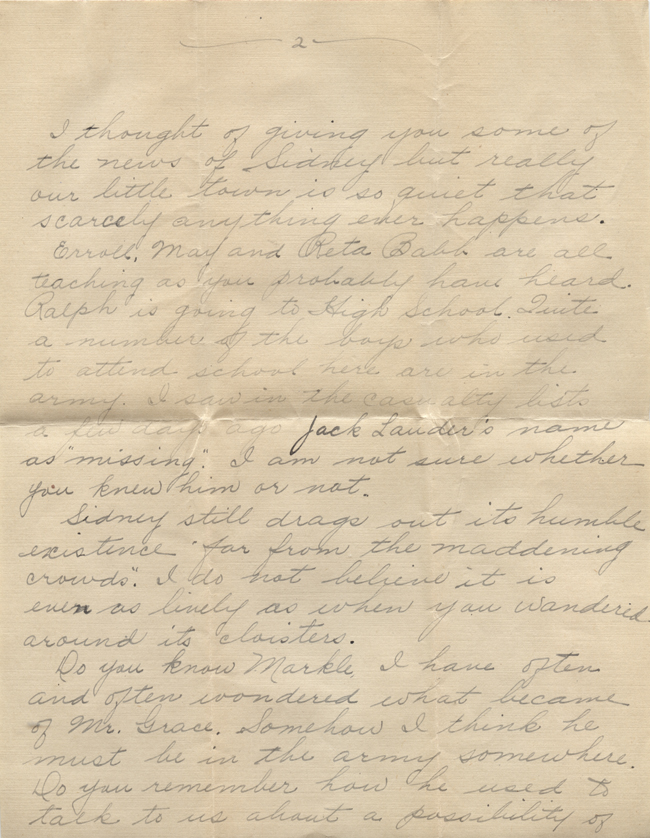 2
I thought of giving you some of
the news of Sidney but really
our little town is so quiet that
scarcely anything ever happens.
Erroll, May and Reta Babb are all
teaching as you probably have heard.
Ralph is going to High School. Quite
a number of the boys who used
to attend school here are in the
army. I saw in the casualty lists
a few days ago Jack Lauder's name
as "missing". I am not sure whether
you knew him or not.
Sidney still drags out its humble
existence "far from the maddening
crowds". I do not believe it is
even as lively as when you wandered
around its cloisters.
Do you know Markle, I have often
and often wondered what became
of Mr. Grace. Somehow I think he
must be in the army somewhere.
Do you remember how he used to
talk to us about a possibility of